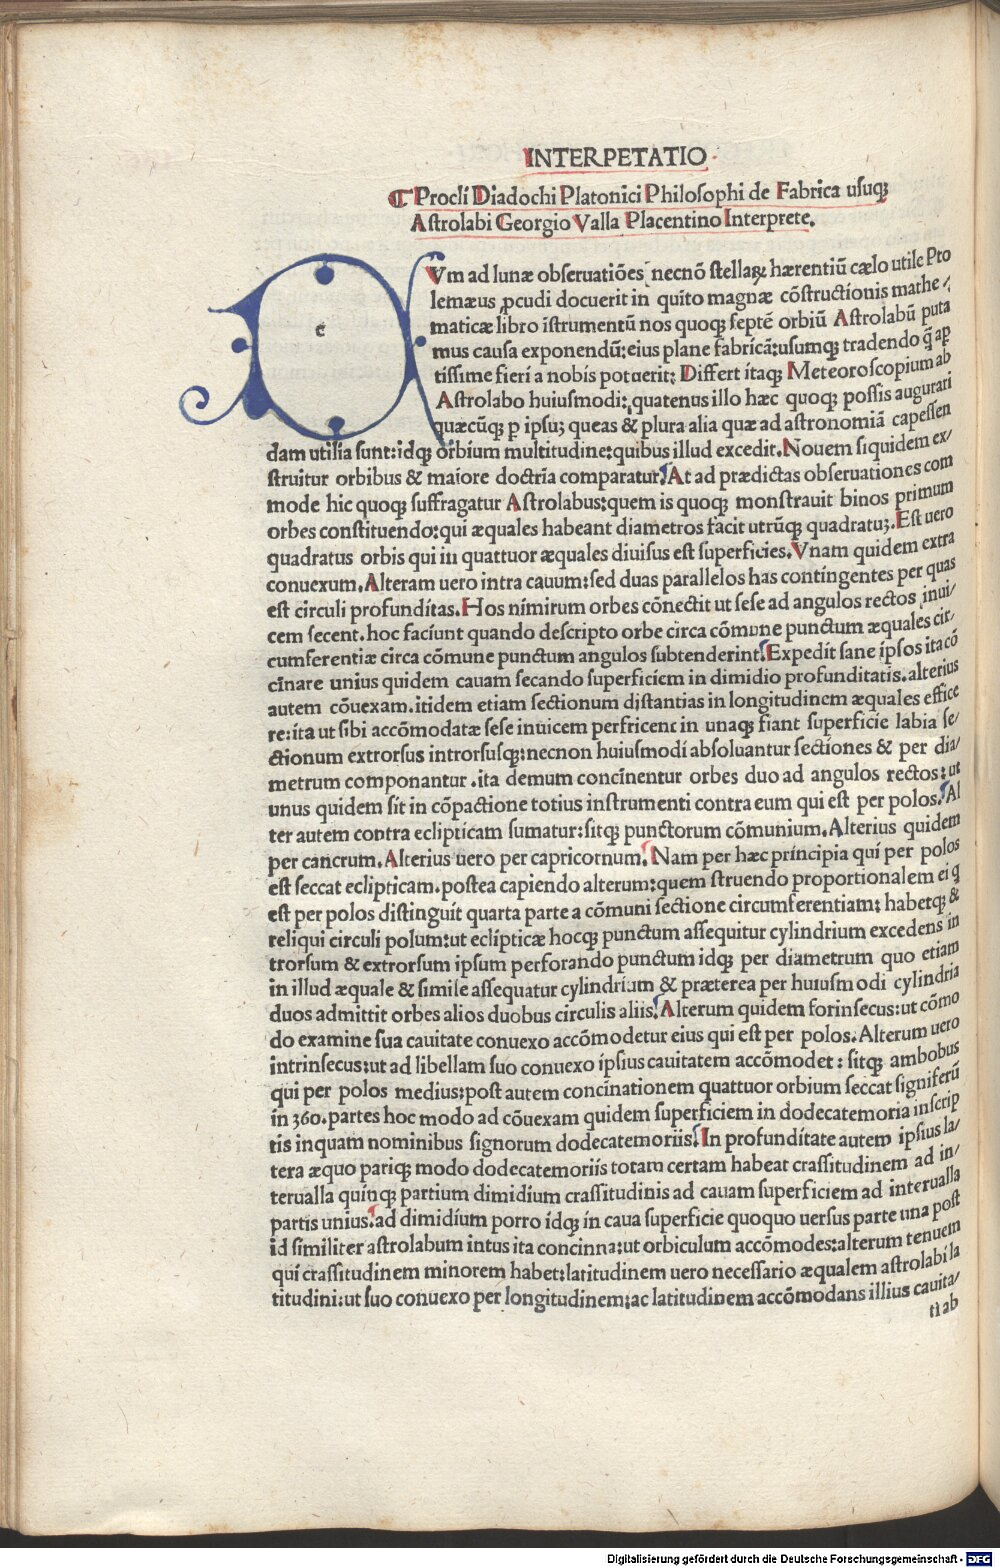 INTERPETATIO
¶ Procli Diadochi Platonici Philosophi de Fabrica usuqꝫ
Astrolabi Georgio Valla Placentino Interprete.
c
Vm ad lunæ obseruatiões necnõ stellaꝝ hærentiũ cælo utile Pto
lemæus ꝓcudi docuerit in quito magnæ cõstructionis mathe/
maticæ libro ĩstrumentũ nos quoqꝫ septẽ orbiũ Astrolabũ puta
mus causa exponendũ: eius plane fabricã: usumqꝫ tradendo q̃ ap
tissime fieri a nobis potuerit: Differt itaqꝫ Meteoroscopium ab
Astrolabo huiusmodi: quatenus illo hæc quoqꝫ possis augurari
quæcũqꝫ p ipsuꝫ queas & plura alia quæ ad astronomiã capessen
dam utilia sunt: idqꝫ orbium multitudine: quibus illud excedit. Nouem siquidem ex/
struitur orbibus & maiore doctrĩa comparatur. At ad prædictas obseruationes com
mode hic quoqꝫ suffragatur Astrolabus: quem is quoqꝫ monstrauit binos primum
orbes constituendo: qui æquales habeant diametros facit utrũqꝫ quadratuꝫ. Est uero
quadratus orbis qui in quattuor æquales diuisus est superficies. Vnam quidem extra
conuexum. Alteram uero intra cauum: sed duas parallelos has contingentes per quas
est circuli profunditas. Hos nimirum orbes cõnectit ut sese ad angulos rectos inui/
cem secent. hoc faciunt quando descripto orbe circa cõmune punctum æquales cir/
cumferentiæ circa cõmune punctum angulos subtenderint. Expedit sane ipsos ita cõ
cĩnare unius quidem cauam secando superficiem in dimidio profunditatis. alterius
autem cõuexam. itidem etiam sectionum distantias in longitudinem æquales effice
re: ita ut sibi accõmodatæ sese inuicem perfricent in unaqꝫ fiant superficie labia se/
ctionum extrorsus introrsusqꝫ: necnon huiusmodi absoluantur sectiones & per dia/
metrum componantur. ita demum concĩnentur orbes duo ad angulos rectos: ut
unus quidem sit in cõpactione totius instrumenti contra eum qui est per polos. Al
ter autem contra eclipticam sumatur: sitqꝫ punctorum cõmunium. Alterius quidem
per cancrum. Alterius uero per capricornum. Nam per hæc principia qui per polos
est seccat eclipticam. postea capiendo alterum: quem struendo proportionalem ei q
est per polos distinguit quarta parte a cõmuni sectione circumferentiam: habetqꝫ &
reliqui circuli polum: ut eclipticæ hocqꝫ punctum assequitur cylindrium excedens in
trorsum & extrorsum ipsum perforando punctum idqꝫ per diametrum quo etiam
in illud æquale & simile assequatur cylindrium & præterea per huiusmodi cylindria
duos admittit orbes alios duobus circulis aliis. Alterum quidem forinsecus: ut cõmo
do examine sua cauitate conuexo accõmodetur eius qui est per polos. Alterum uero
intrinsecus: ut ad libellam suo conuexo ipsius cauitatem accõmodet: sitqꝫ ambobus
qui per polos medius: post autem concĩnationem quattuor orbium seccat signiferũ
in 360. partes hoc modo ad cõuexam quidem superficiem in dodecatemoria inscrip
tis inquam nominibus signorum dodecatemoriis. In profunditate autem ipsius la/
tera æquo pariqꝫ modo dodecatemoriis totam certam habeat crassitudinem ad in/
terualla quinqꝫ partium dimidium crassitudinis ad cauam superficiem ad interualla
partis unius. ad dimidium porro idqꝫ in caua superficie quoquo uersus parte una post
id similiter astrolabum intus ita concinna: ut orbiculum accõmodes: alterum tenuem
qui crassitudinem minorem habet: latitudinem uero necessario æqualem astrolabi la
titudini: ut suo conuexo per longitudinem: ac latitudinem accõmodans illius cauita/
ti ab
Digitalisierung gefördert durch die Deutsche Forschungsgemeinschaft - DFG